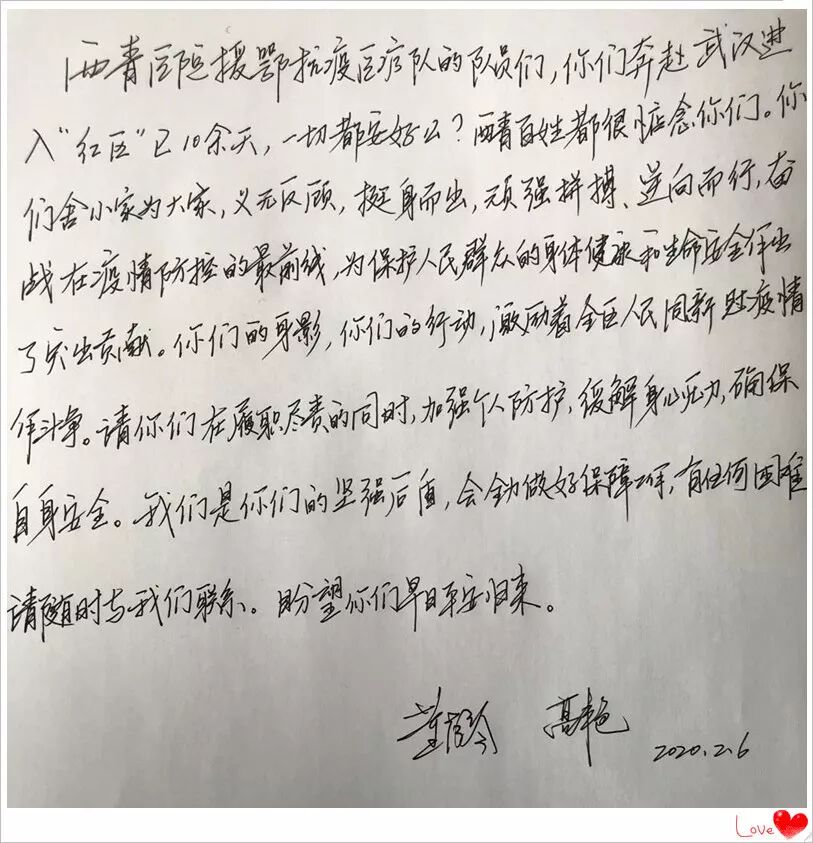 西青医院援鄂抗疫医疗队的队员们，你们奔赴武汉进
入“红区”已10余天，一切都安好么？西青百姓都很惦念你们。你
们舍小家为大家，义无反顾，挺身而出，顽强拼搏、逆向而行，奋
战在疫情防控的最前线，为保护人民群众的身体健康和生命安全作出
了突出贡献。你们的身影，你们的行动，激励着全区人民同新冠疫情
作斗争。请你们在履职尽责的同时，加强个人防护，缓解身心压力，确保
自身安全。我们是你们的坚强后盾，会全力做好保障工作，有任何困难
请随时与我们联系。盼望你们早日平安归来。
高艳
2020.2.6
Love